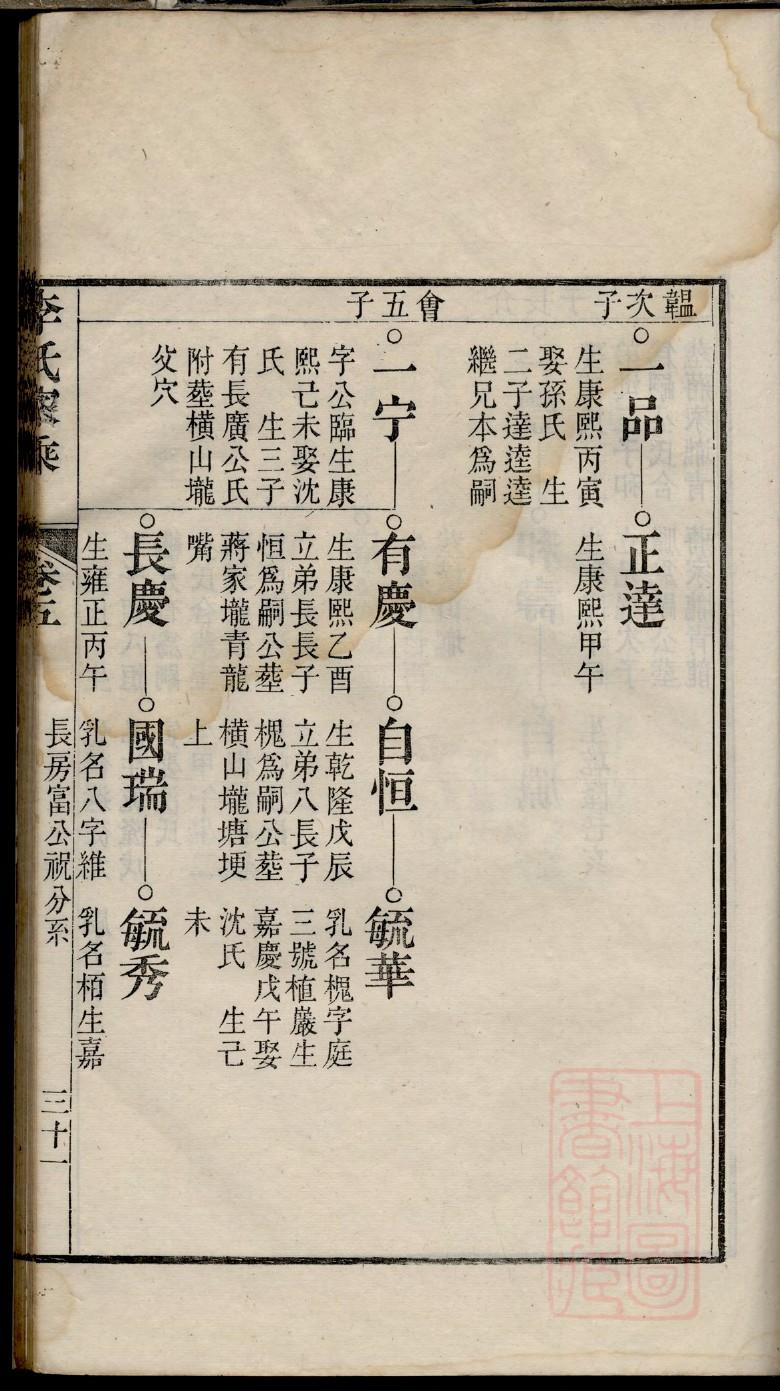 韞次子
一品
生康熙丙寅
娶孫氏 生
二子達逵逵
繼兄本為嗣
正達
生康熙甲午
會五子
一宁
字公臨生康
熙己未娶沈
氏 生三子
有長廣公氏
附塟橫山壠
父穴
有慶
生康熙乙酉
立弟長長子
恒為嗣公塟
蔣家壠青龍
嘴
自恒
生乾隆戊辰
立弟八長子
槐為嗣公塟
橫山壠塘埂
上
毓華
乳名槐字庭
三號植嚴生
嘉慶戊午娶
沈氏 生己
未
長慶
生雍正丙午
國瑞
乳名八字維
毓秀
乳名栢生嘉
李氏家乘
卷五
長房富公祝分系
三十一
上海圖書館藏